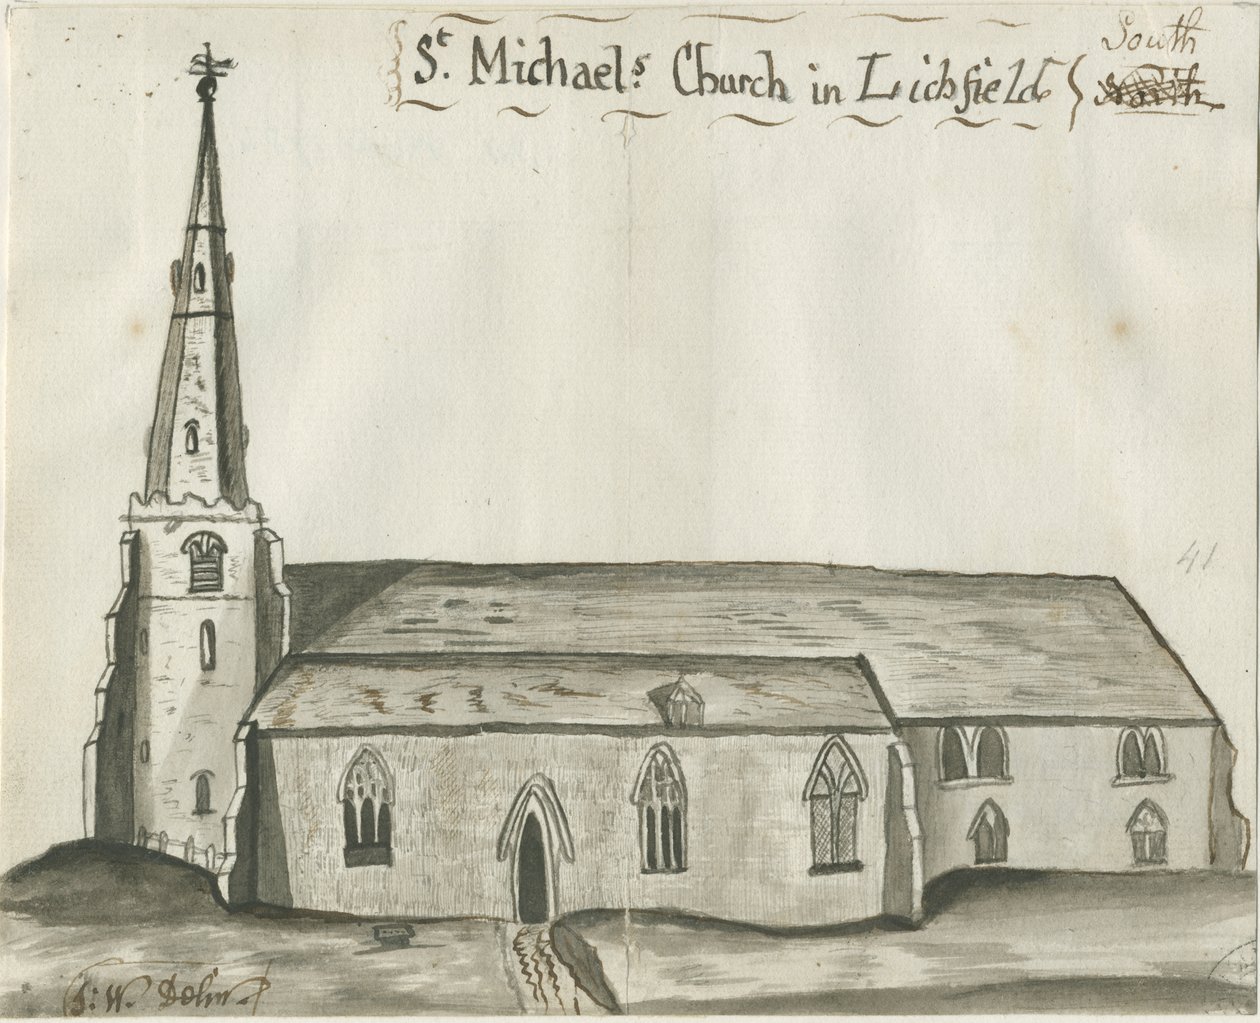 South
St. Michael's Church in Lichfield North
41
J: W. Delin.